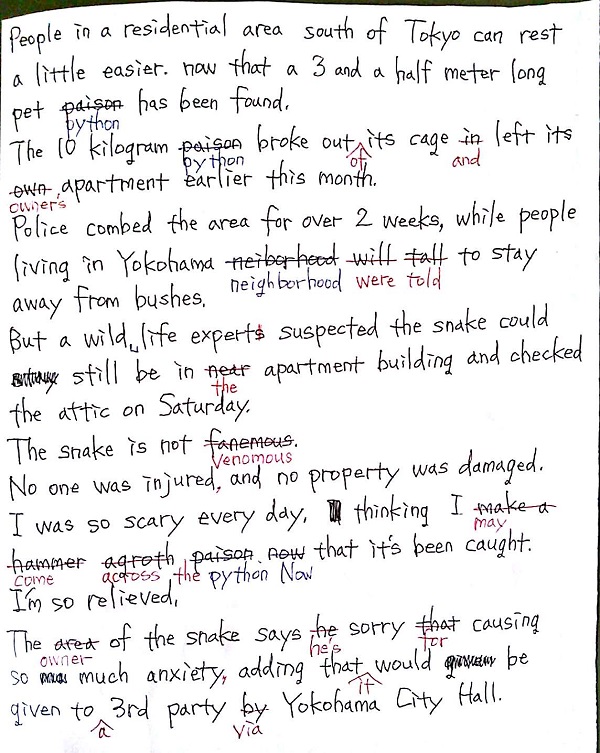 People in a residential area south of Tokyo can rest
a little easier. now that a 3 and a half meter long
pet paison has been found.
python
The 10 kilogram paison broke out its cage in left its
python of and
own apartment earlier this month.
owner's
Police combed the area for over 2 weeks, while people
living in Yokohama neiborhood will tall to stay
neighborhood were told
away from bushes.
But a wild life experts suspected the snake could
still be in near apartment building and checked
the
the attic on Saturday.
The snake is not fanemous.
venomous
No one was injured, and no property was damaged.
I was so scary every day, thinking I make a
may
hammer agroth paison now that it's been caught.
come across the python. Now
I'm so relieved.
The area of the snake says he sorry that causing
owner he's for
so much anxiety, adding that would be
it
given to 3rd party by Yokohama City Hall.
a via